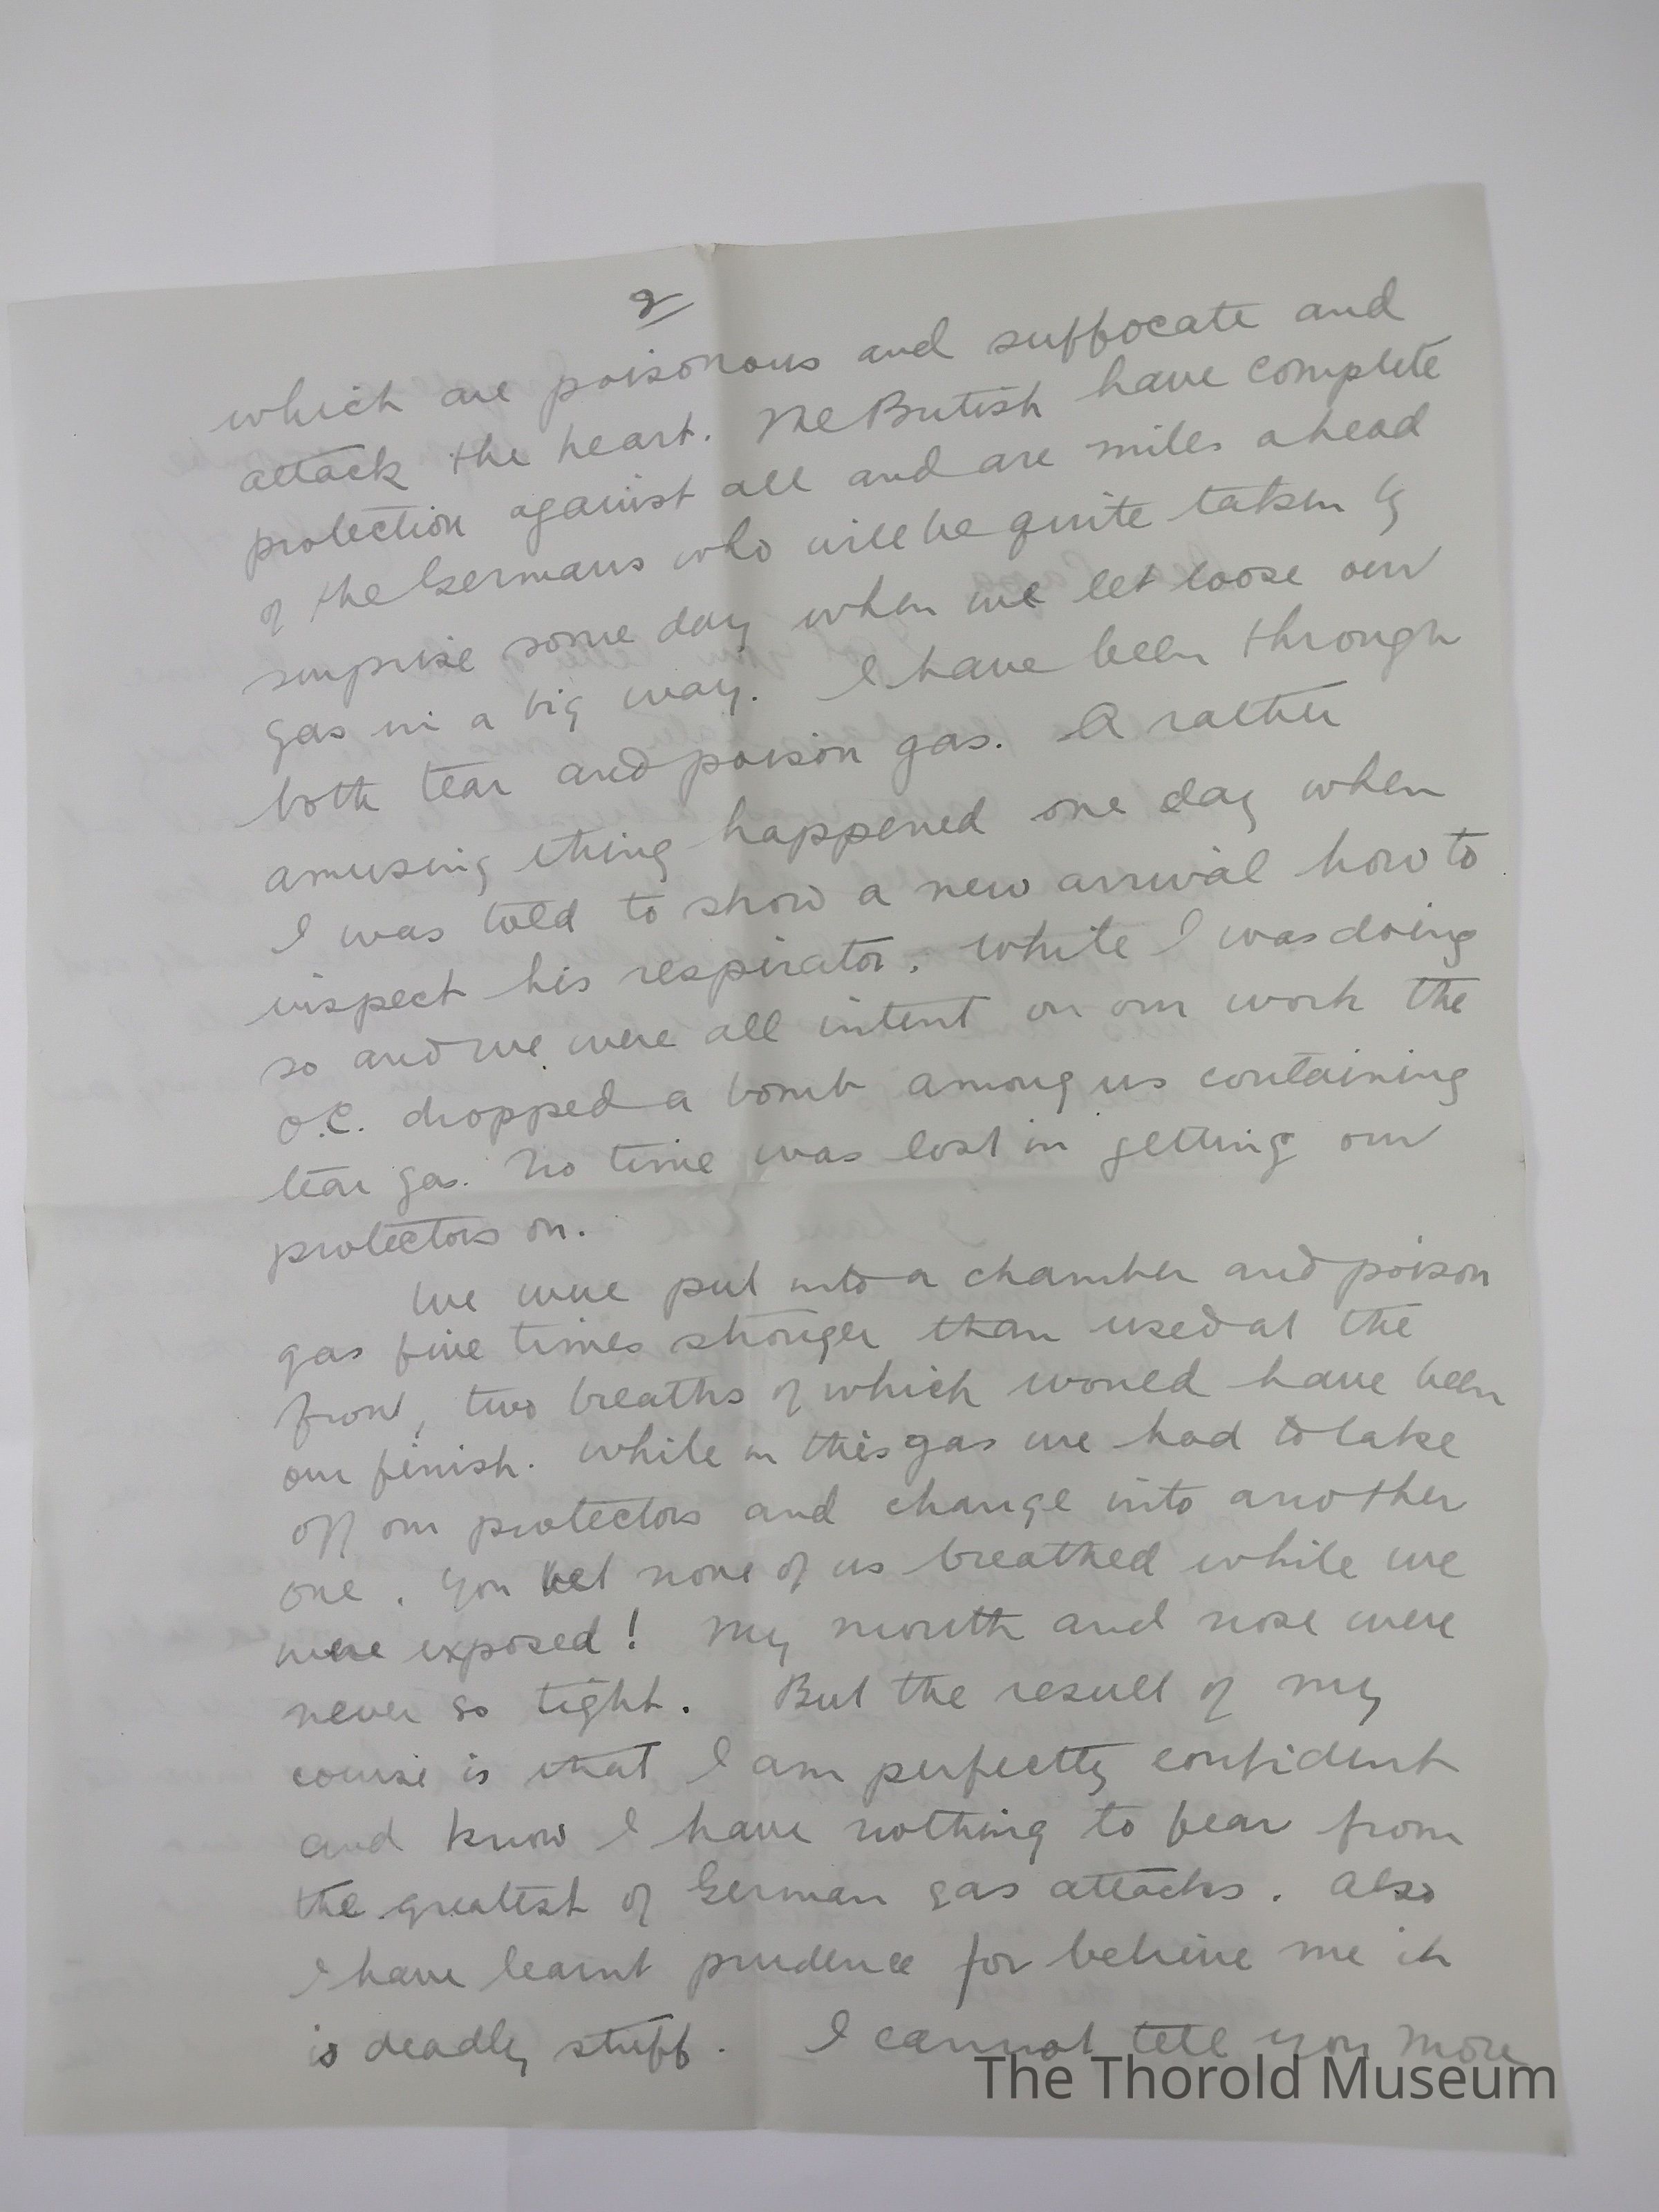 2
which are poisonous and suffocate and
attack the heart. The British have complete
protection against all and are miles ahead
of the Germans who will be quite taken by
surprise some day when we let loose our
gas in a big way. I have been through
both tear and poison gas. A rather
amusing thing happened one day when
I was told to show a new arrival how to
inspect his respirator. While I was doing
so and we were all intent on our work the
O.C. dropped a bomb among us containing
tear gas. No time was lost in getting our
protectors on.
We were put into a chamber and poison
gas five times stronger than used at the
front, two breaths of which would have been
our finish. While in this gas we had to take
off our protectors and change into another
one. You bet none of us breathed while we
were exposed! My mouth and nose were
never so tight. But the result of my
course is that I am perfectly confident
and know I have nothing to fear from
the greatest of German gas attacks. Also
I have learnt prudence for believe me it
is deadly stuff. I cannot tell you more
The Thorold Museum